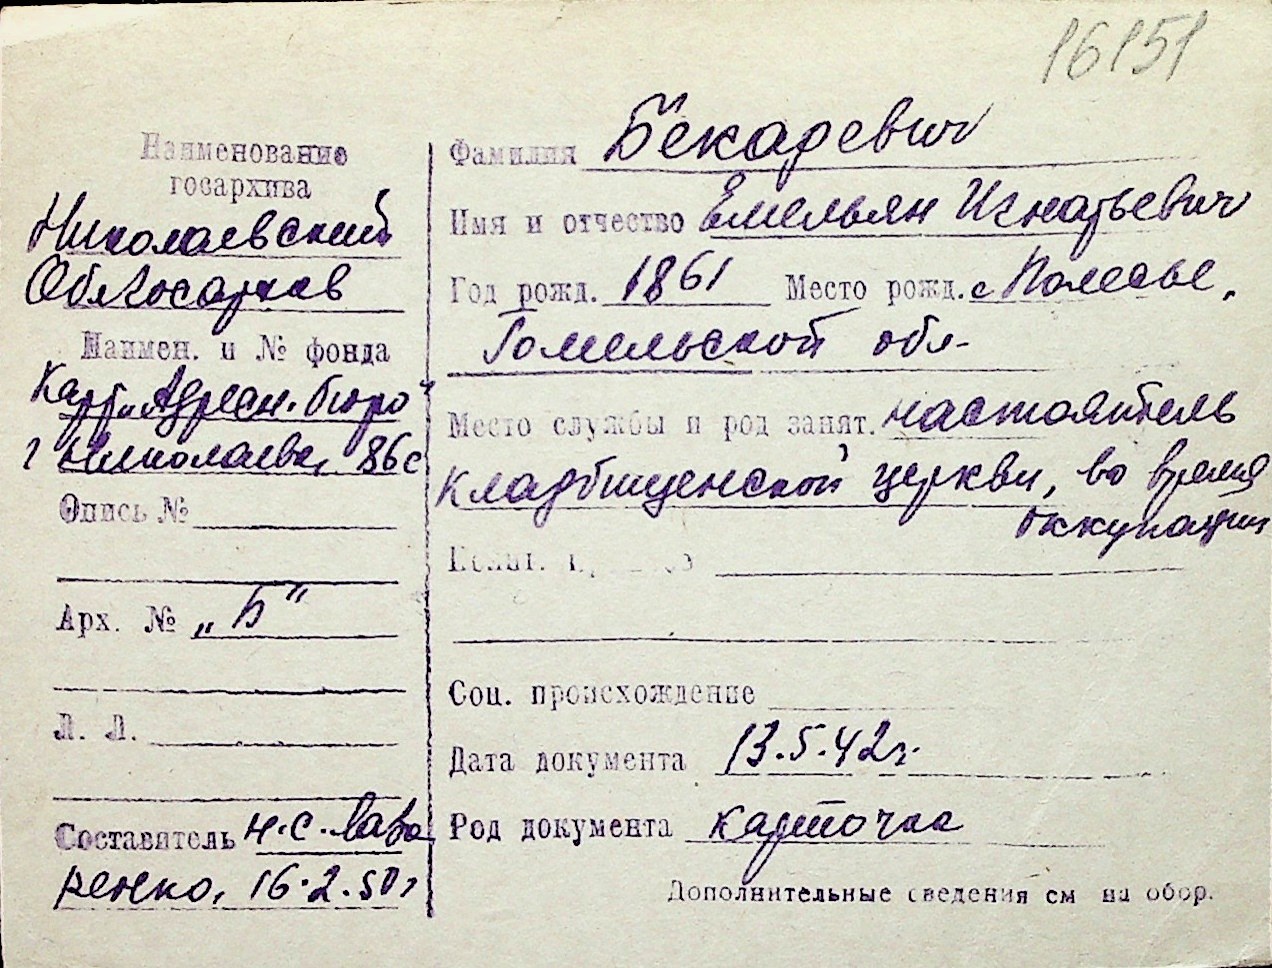 16151
Наименование
госархива
Николаевский
Облгосархив
Наимен. и № фонда
Карт. „Адресн. бюро"
г Николаева, 86с
Опись №
Арх. № „Б"
Л. Л.
Составитель Н.С. Лаво
ренко, 16.2.50г
Фамилия Бекаревич
Имя и отчество Емельян Игнатьевич
Год рожд. 1861 Место рожд. с Полесье,
Гомельской обл.
Место службы и род занят. настоятель
кладбищенской церкви, во время
оккупации
Соц. происхождение
Дата документа 13.5.42г.
Род документа карточка
Дополнительные сведения см на обор.